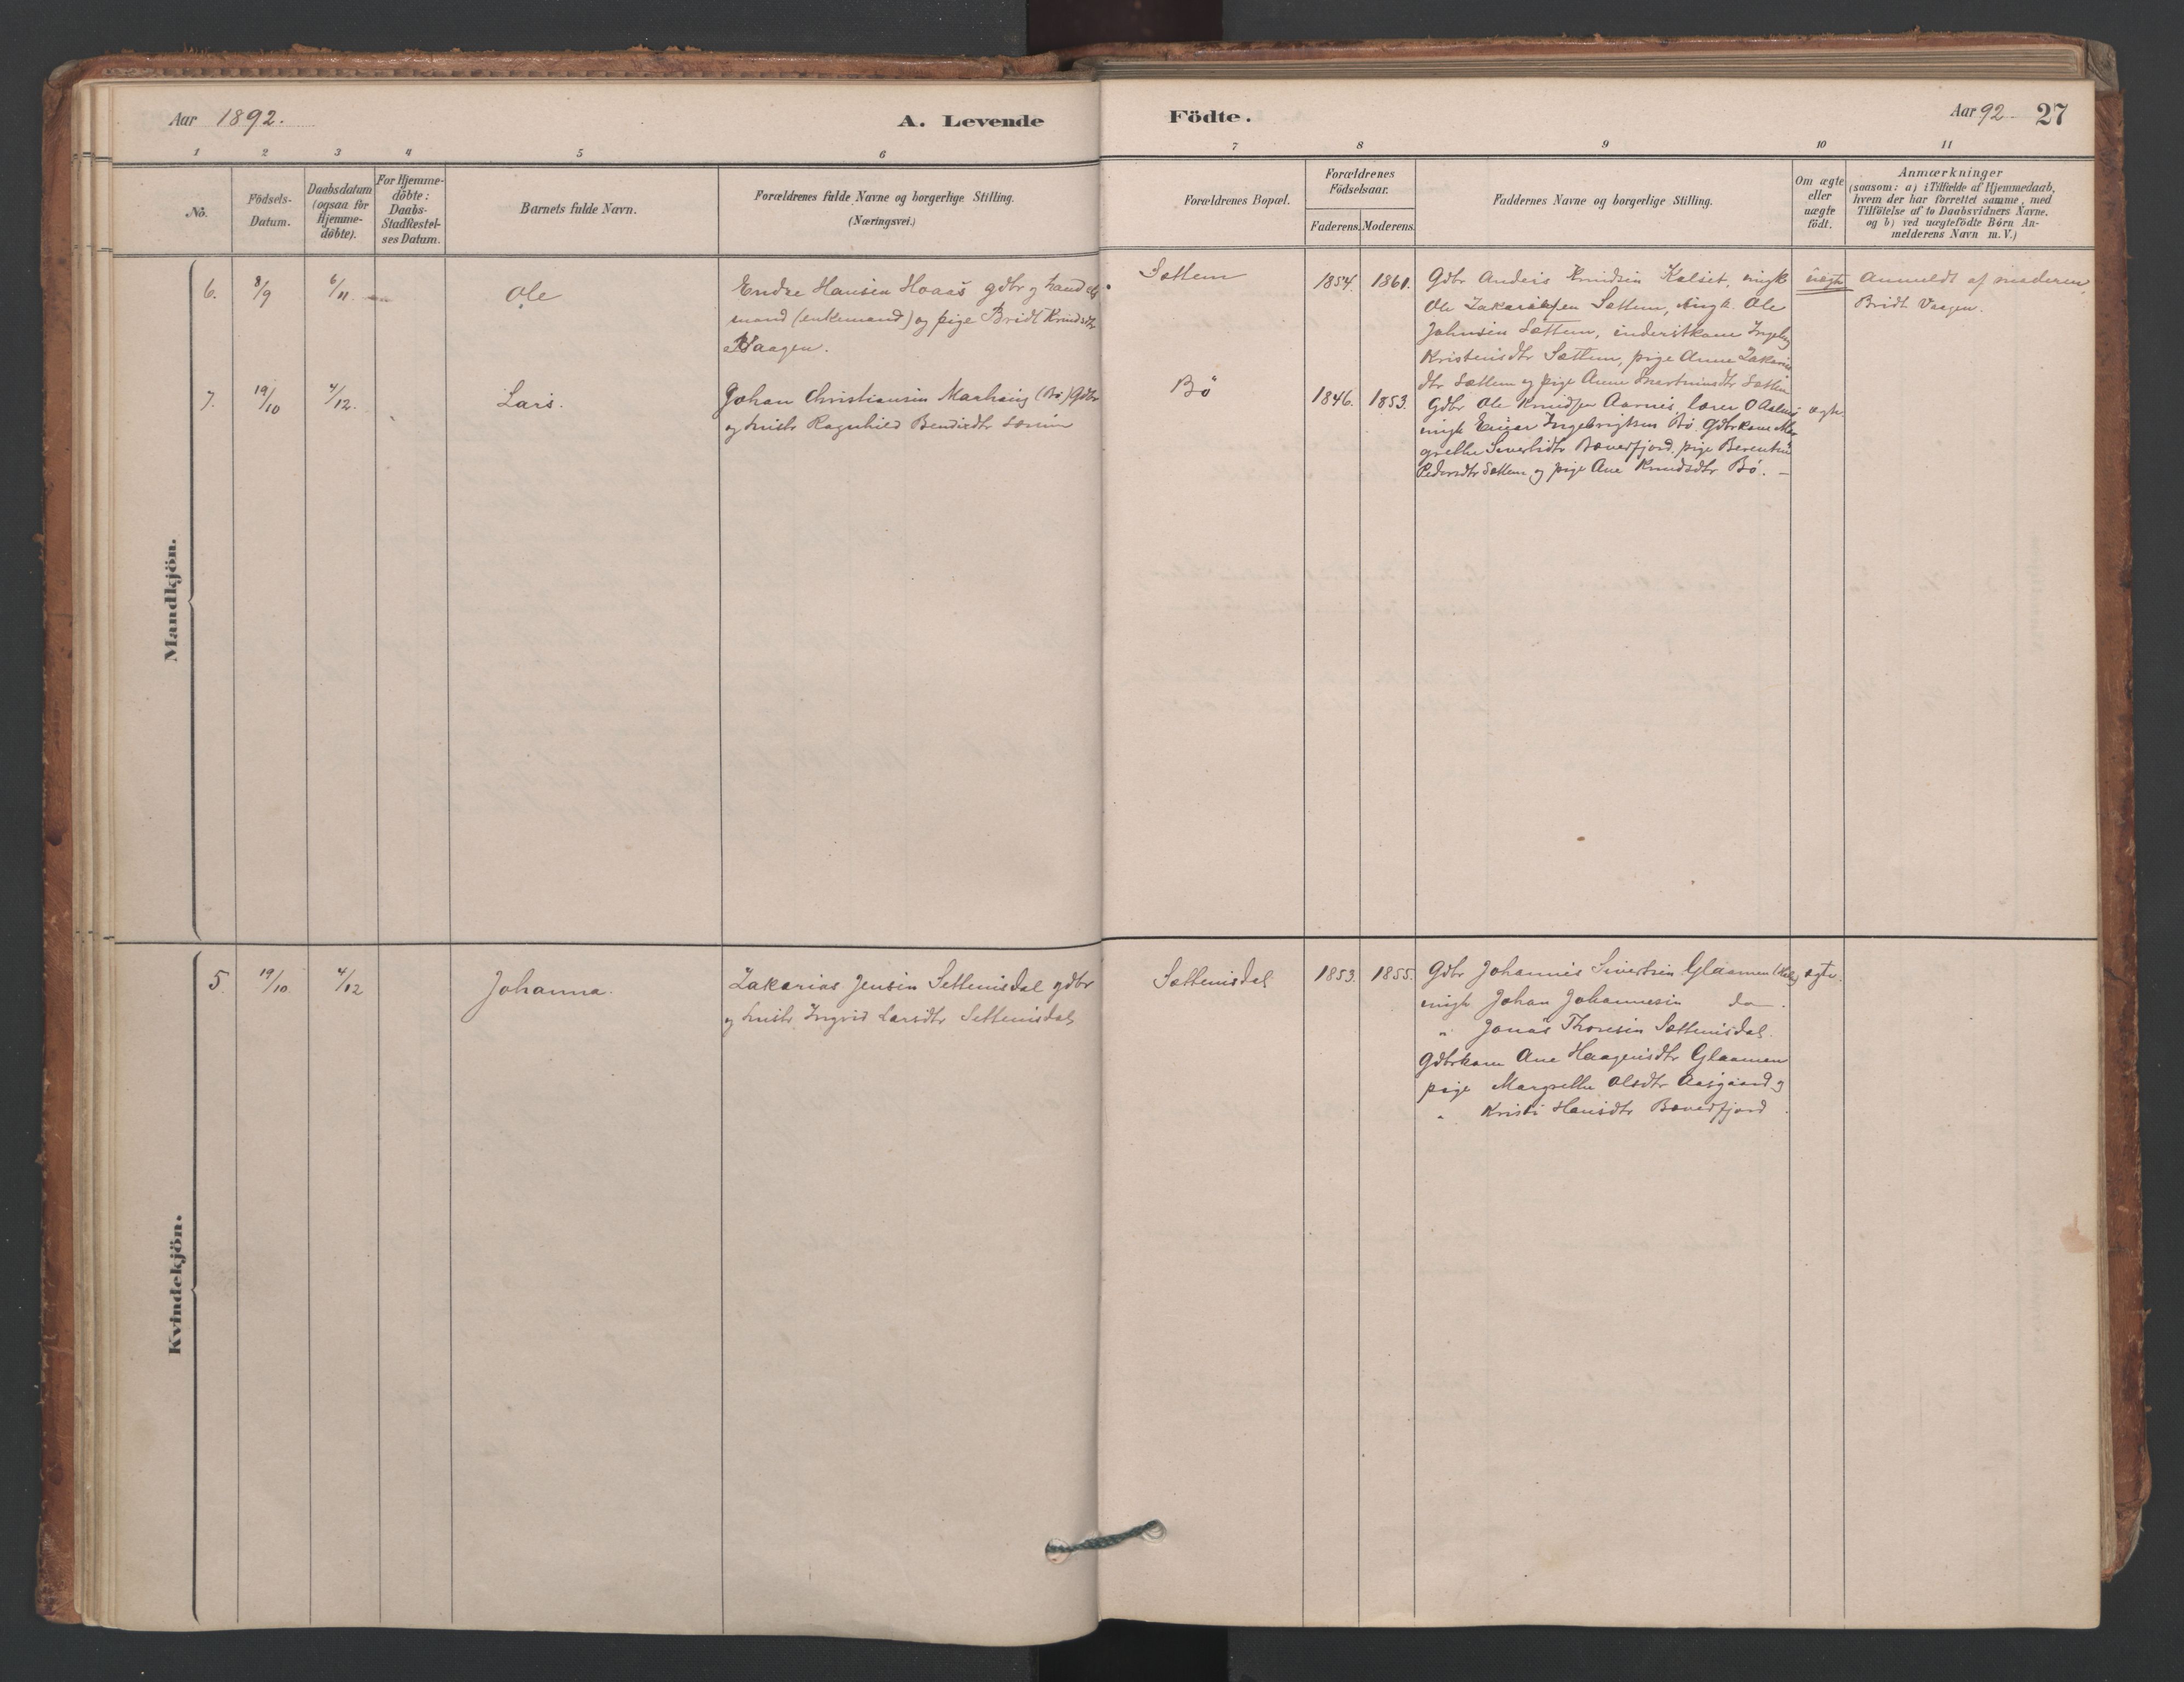 Aar 1892.
A. Levende
Födte.
Aar 92 27
1 2 3 4 5 6 7 8 9 10 11
No.
Födsels-
Datum.
Daabsdatum
(ogsaa for
Hjemme-
döbte).
For Hjemme-
döbte:
Daabs-
Stadfestel-
ses Datum.
Barnets fulde Navn.
Forældrenes fulde Navne og borgerlige Stilling.
(Næringsvei.)
Forældrenes Bopæl.
Forældrenes
Födselsaar.
Faderens. Moderens.
Faddernes Navne og borgerlige Stilling.
Om ægte
eller
uægte
födt.
Anmærkninger
(saasom: a) i Tilfælde af Hjemmedaab,
hvem der har forrettet samme, med
Tilföielse af to Daabsvidners Navne.
og b) ved uægtefödte Börn An-
melderens Navn m. V.)
Mandkjön.
6. 8/9 6/11 Ole
Endre Hansen Hoaas gdbr og handels
mand (enkemand) og pige Bridt Knudsdtr
Vaagen.
Sættem
1854. 1861.
Gdbr Anders Knudsen Kalset, ungk
Ole Zakariassen Sættem, ungk. Ole
Johnsen Sættem, inderstkone Ingebg
Kristensdtr Sættem, pige Anne Zakarias
dtr Sættem og pige Anne Martinusdtr Sættem
uægte
Anmeldt af moderen,
Bridt Vaagen.
7. 19/10 4/12. Lars.
Johan Christiansen Marhaug (Bö) Gdbr
og hustr Ragnhild Bendixdtr
Bö
1846. 1853.
Gdbr Ole Knudsen Aarnes, lærer O Aalmo
ungk Einar Ingebrigtsen Bö. Gdbrkone Mar
grethe Sivertsdtr Bæverfjord, pige Berentine
Pedersdtr Sættem og pige Ane Knudsdtr Bö. –
ægte
Kvindekjön.
5. 19/10. 4/12 Johanna.
Zakarias Jensen Settemsdal gdbr
og hustr. Ingrid Larsdtr Settemsdal
Sættemsdal
1853. 1855.
Gdbr Johannes Sivertsen Glaamen ægte.
ungk Johan Johannesen do.
" Jonas Thoresen Sættemsdal.
Gdbrkone Ane Haagensdtr Glaamen
pige Margrethe Olsdtr Aasgaard og
" Kristi Hansdtr Bæverfjord